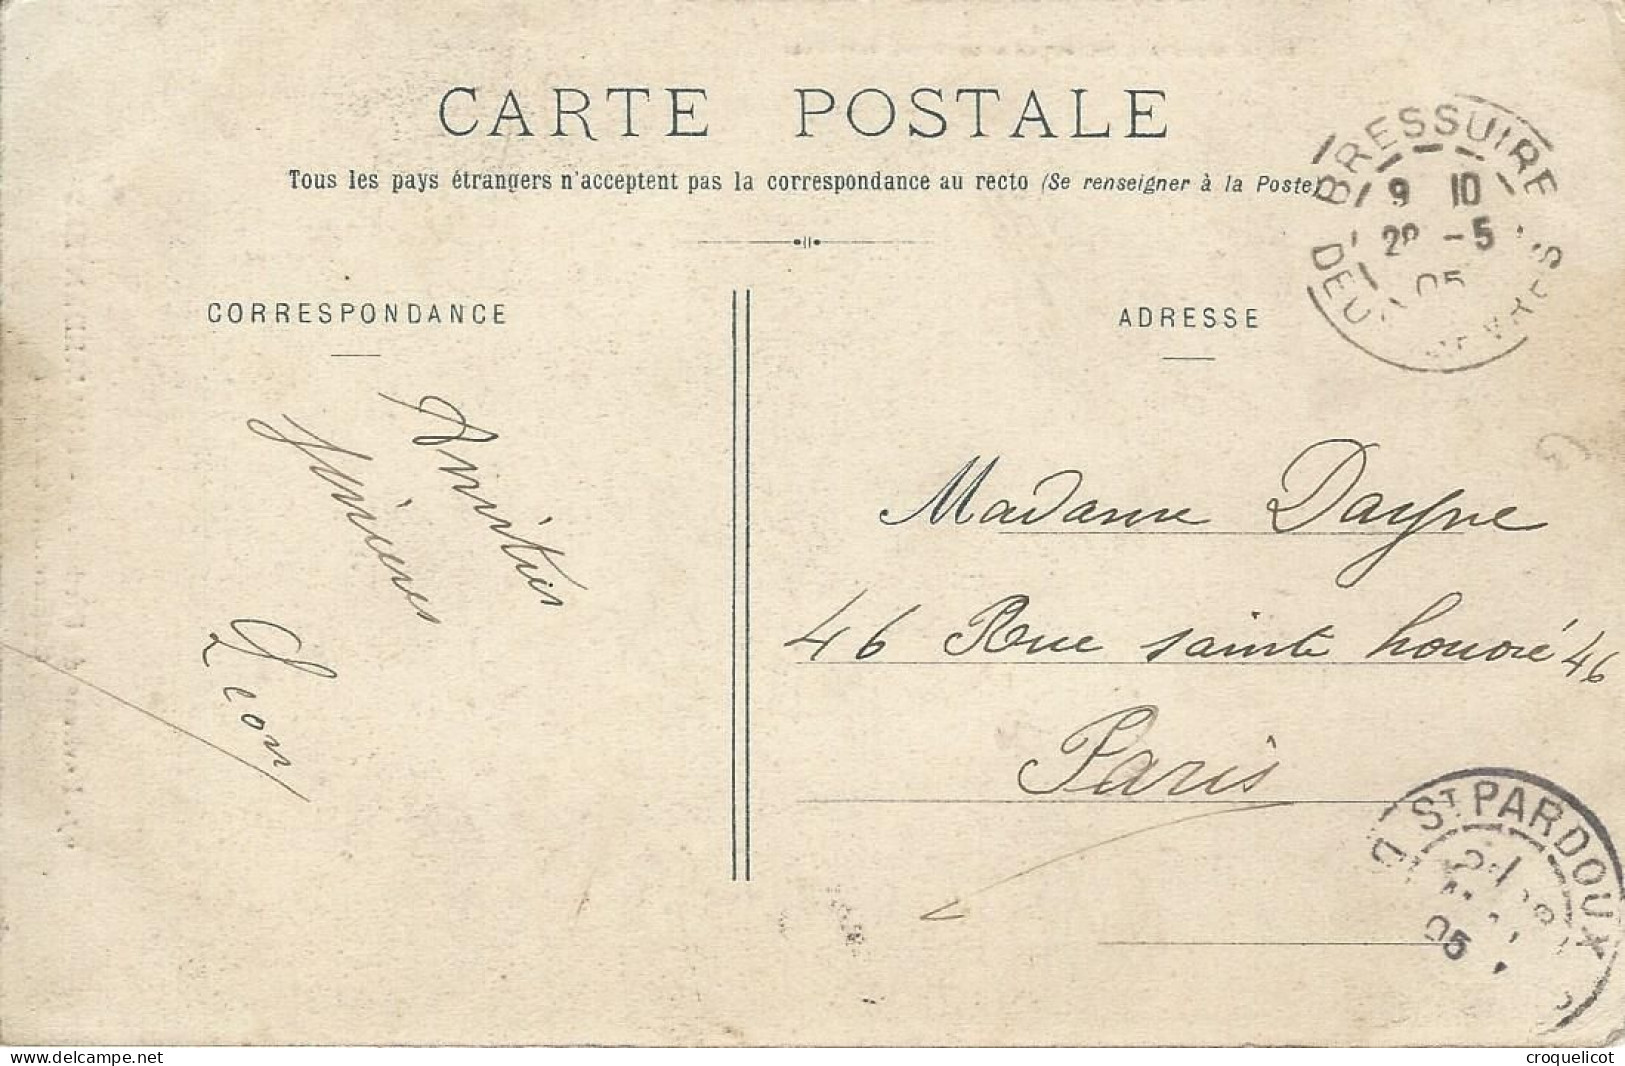 CARTE POSTALE
Tous les pays étrangers n'acceptent pas la correspondance au recto (Se renseigner à la Poste)
CORRESPONDANCE
ADRESSE
BRESSUIRE
9 10
-5
05
Amitiés
sincères
Léon
Madame Dayne
46 Rue sainte honoré 46
Paris
ST PARDOUX
05
www.delcampe.net
croquelicot